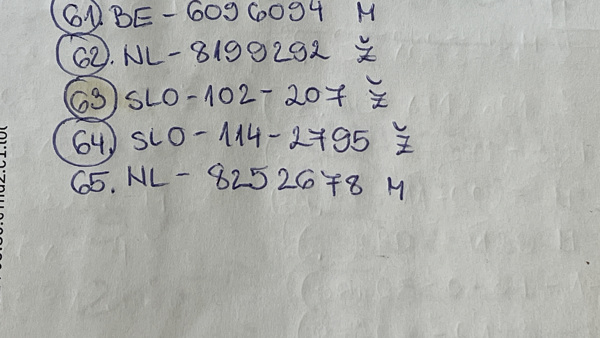 61. BE - 6096094 M
62. NL - 8199292 Ž
63 SLO - 102 - 207 Ž
64. SLO - 114 - 2795 Ž
65. NL - 8252678 M